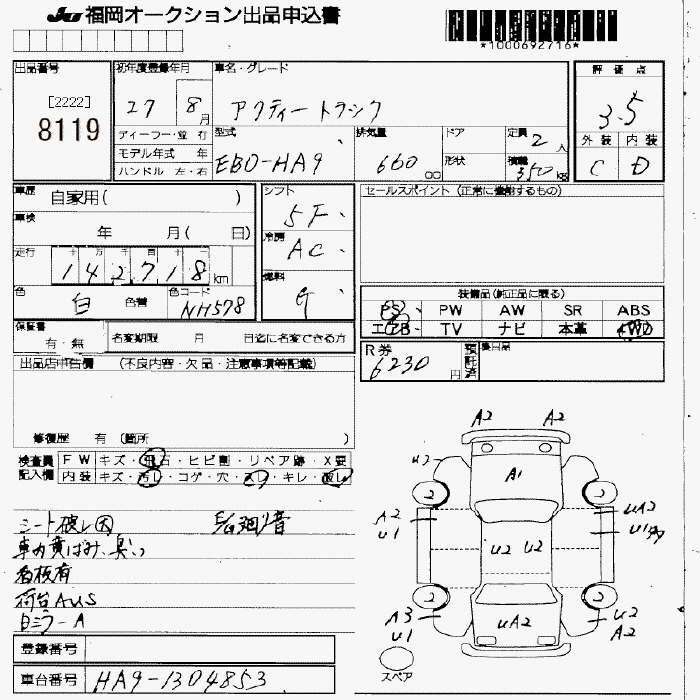 JU 福岡オークション出品申込書
*1000692716*
出品番号 初年度登録年月 車名・グレード 評価点
[2222] 27 8月 アクティートラック 3.5
8119
ディーラー・並行 型式 排気量 ドア 定員 2人 外装 内装
モデル年式 年 EBD-HA9 660 形状 積載 350kg C D
ハンドル 左・右 cc
車歴 自家用( ) シフト 5F セールスポイント (正常に登録するもの)
車検 年 月( 日) 冷房 AC
走行 142718km 燃料 G
色 白 色替 色コード NH578
装備品(純正品に限る)
PS PW AW SR ABS
エアB TV ナビ 本革 4WD
保証書 有・無 名変期限 月 日迄に名変できる方
R券 6230円 預託済 後日品
出品店申告欄 (不良内容・欠品・注意事項等記載)
修復歴 有 (箇所 )
検査員 FW キズ・飛石・ヒビ割・リペア跡・X要
記入欄 内装 キズ・汚し・コゲ・穴・スレ・キレ・破レ
シート破レ大
車内黄ばみ、臭い
看板有
荷台AUS
白ミラーA
A2 A2
U2 A1
2 2
A2 U1 UA2
U2 U2
2 2
A3 U1 UA2 U2 A2
スペア
登録番号
車台番号 HA9-1304853